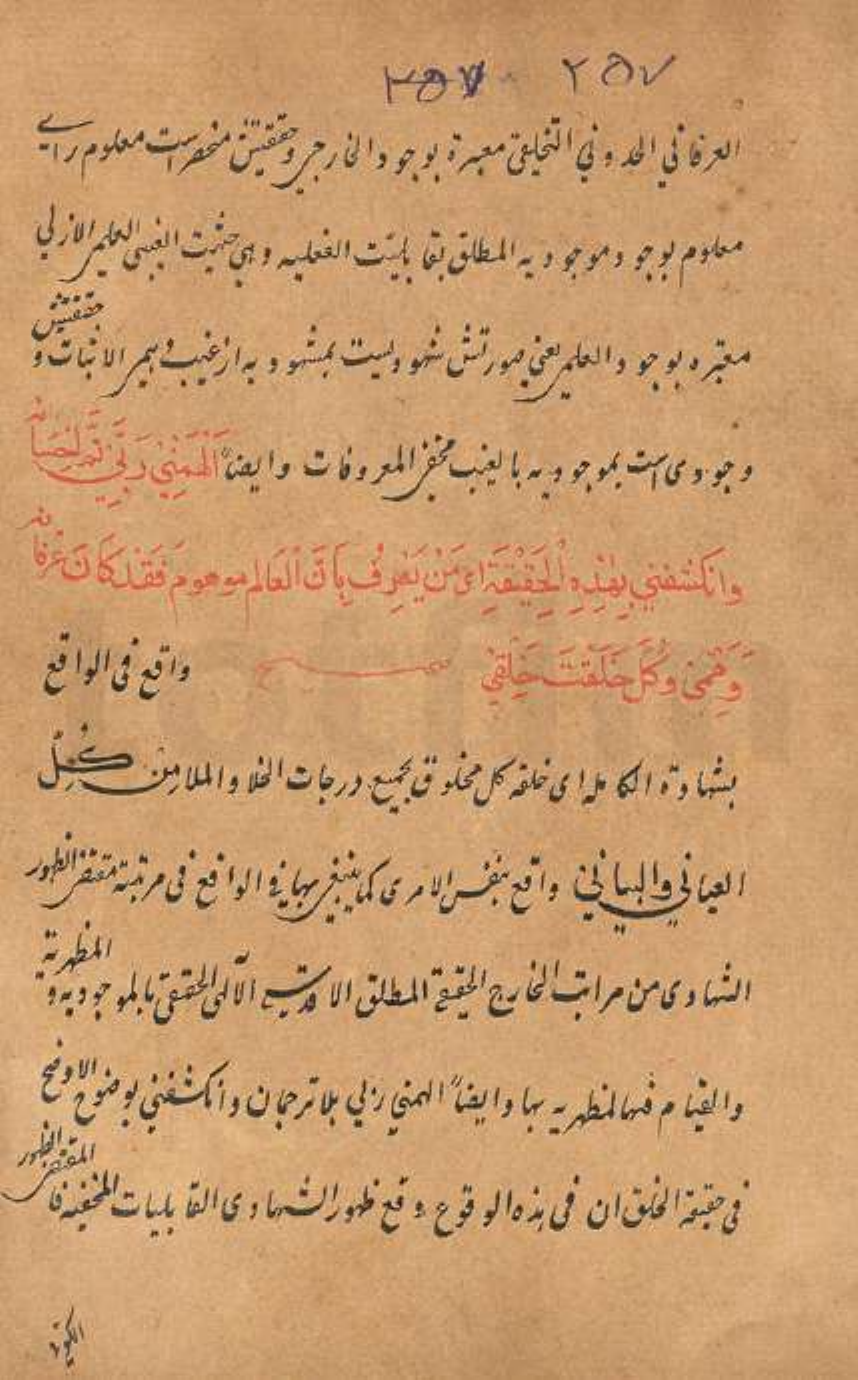 ٣٥٧ ٢٥٧
العرفاني الحدوثي التخليقي معبرة بوجود الخارجي وحقيقتش منحصر است معلوم راے
معلوم بوجود موجوديه المطلق بقابليت الفعليه وهي حيثيت الغيبي العلمي الازلي
معتبره بوجود العلمي يعني صورتش شهوديست بمشهوديه از غيب وهمي الاثبات و حقيقتش
وجودى است بموجوديه بالغيب مخفي المعروفات وايضاً اَلْهَمَنِيْ رَبِّيْ
وانكشفني بِهٰذِهِ الْحَقِيْقَةِ اى مَنْ يَعْرِفُ بِاَنَّ الْعَالَم موهومَ فَقَدْ كَانَ عرفا نه
وَهمي وَكُلَّ خَلَقْتَ خَلْقِيْ واقع فى الواقع
بشهادة الكامله اى خلقه كل مخلوق بجميع درجات الخلا والملا من كُلِّ
العياني والبياني واقع بنفس الامرى كما ينبغي بها في الواقع فى مرتبة مقتضى الظهور
الشهادى من مراتب الخارج الحقيقي المطلق الآلهى الحقيقي بالموجوديه و المظهرية
والقيام فيها لمظهريه بها وايضاً الهمني ربي بلا ترجمان وانكشفني بوضوح الاوضح
فى حقيقة الخلق ان فى هذه الوقوع وقع ظهور الشهادى القابليات المخفيه فا المقتضى الظهور